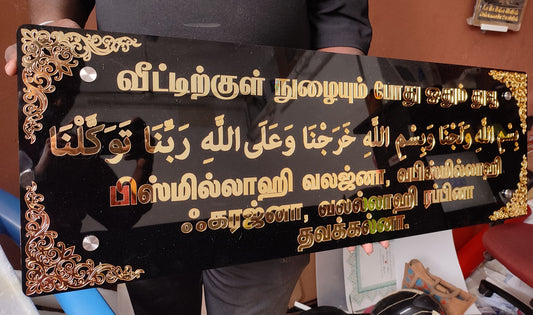 வீட்டிற்குள் நுழையும் போது ஓதும் துஆ
بِسْمِ اللَّهِ وَلَجْنَا وَبِسْمِ اللَّهِ خَرَجْنَا وَعَلَى اللَّهِ رَبِّنَا تَوَكَّلْنَا
பிஸ்மில்லாஹி வலஜ்னா, வபிஸ்மில்லாஹி
ஃகரஜ்னா, வல்லல்லாஹி ரப்பினா
தவக்கல்னா.